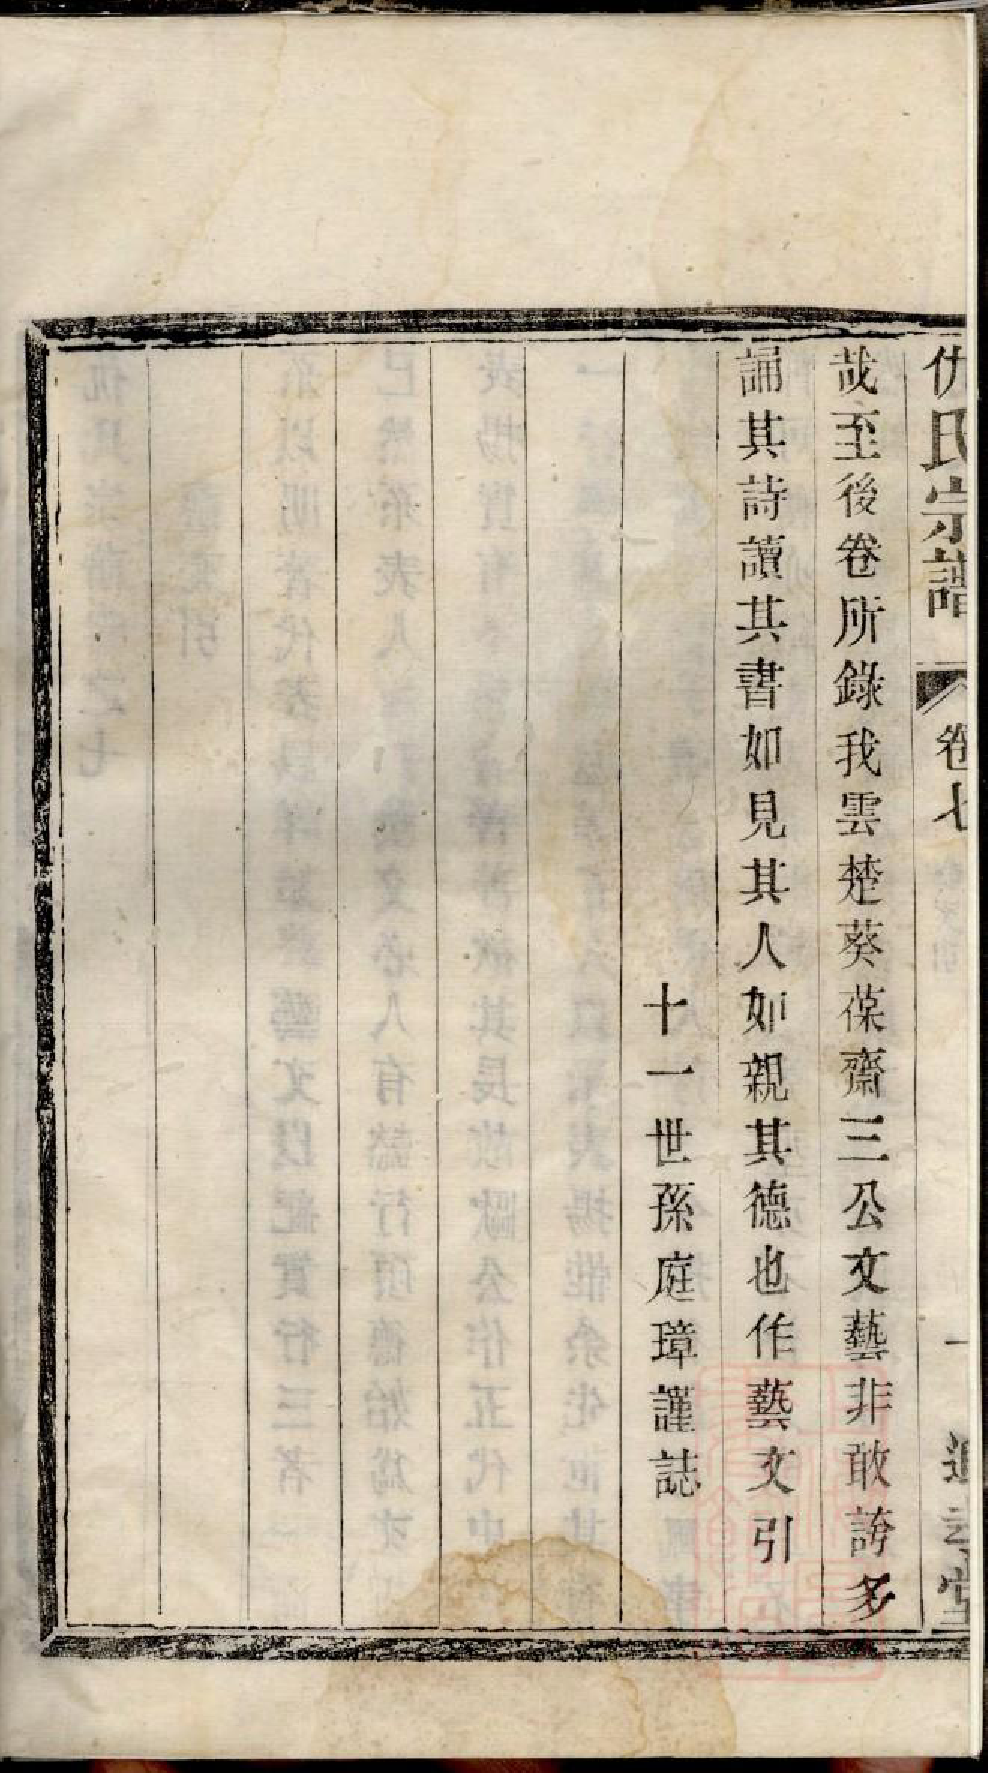 仇氏宗譜 卷七 一
哉至後卷所錄我雲楚葵葆齋三公文藝非敢誇多
誦其詩讀其書如見其人如親其德也作藝文引
十一世孫庭璋謹誌